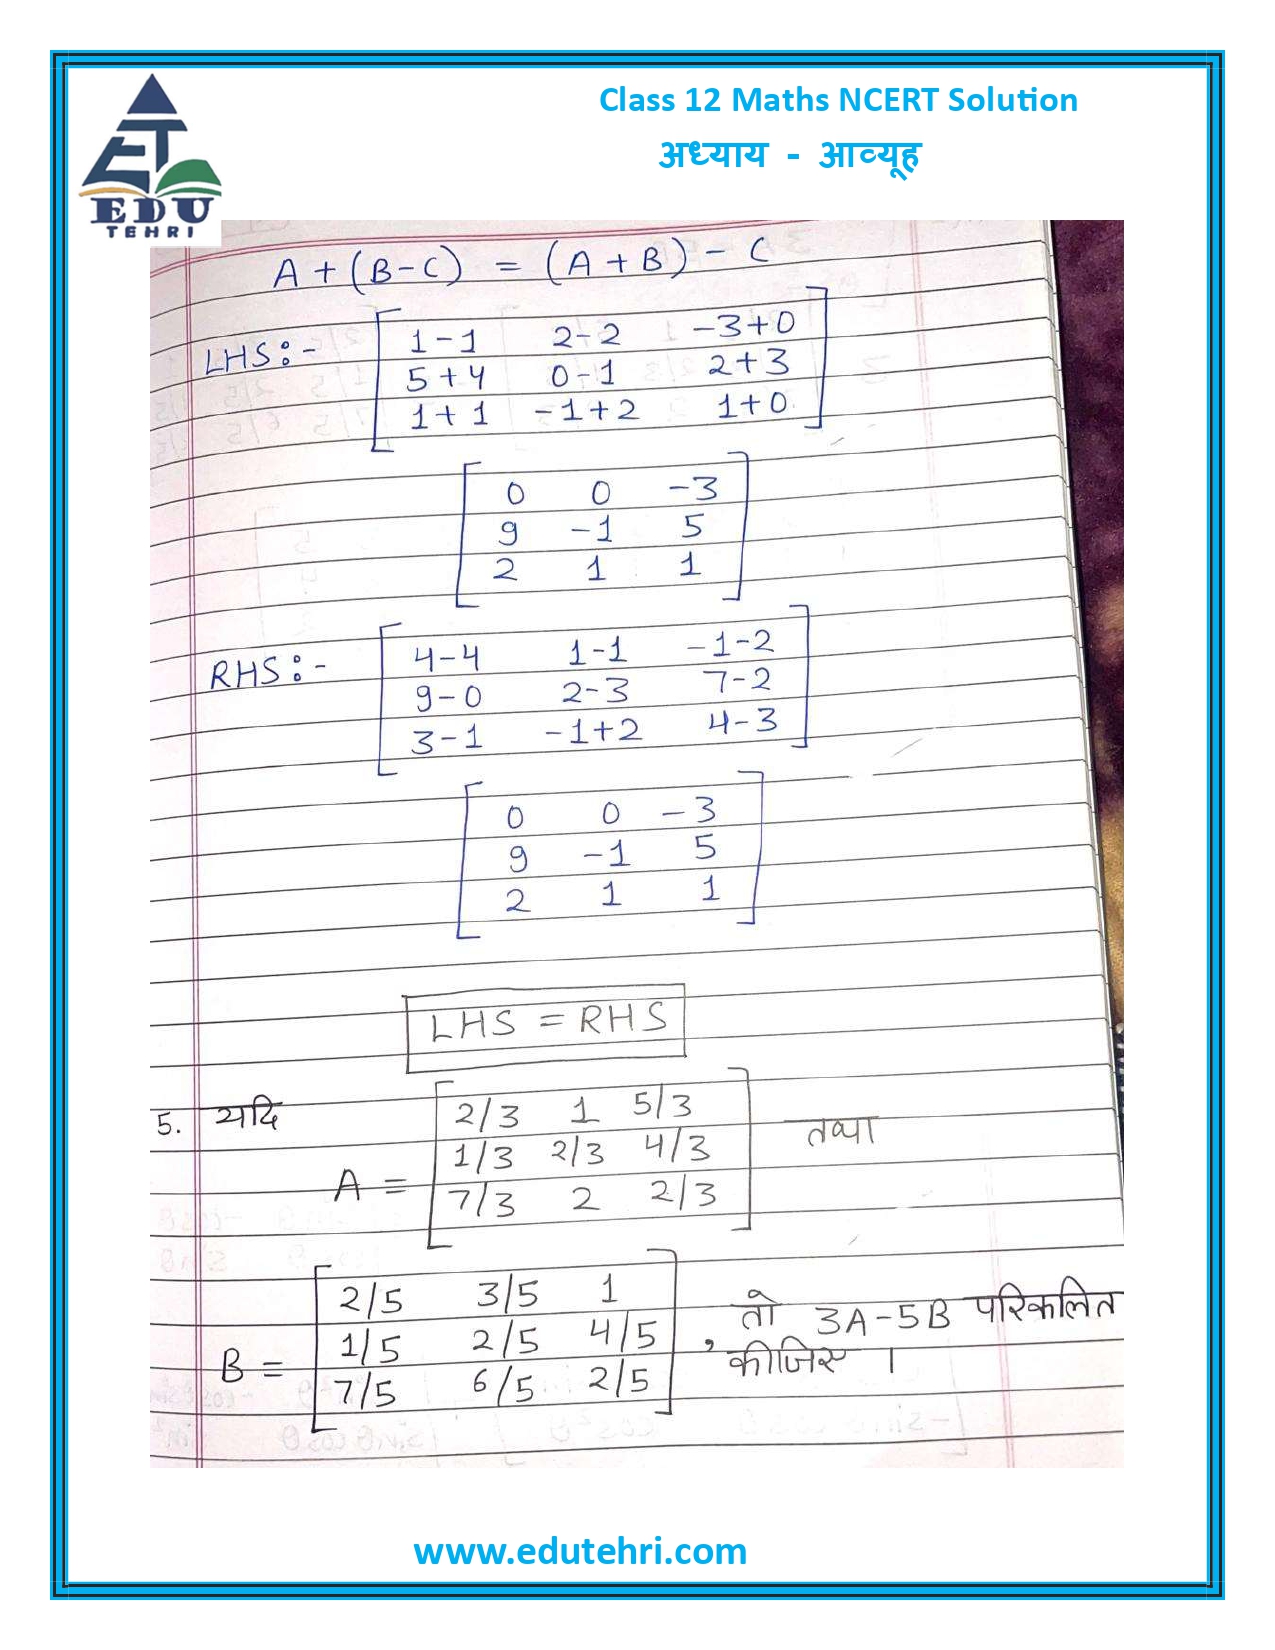 Class 12 Maths NCERT Solution
अध्याय - आव्यूह
EDU
TEHRI
A + (B - C) = (A + B) - C
LHS:- [ 1-1 2-2 -3+0
5+4 0-1 2+3
1+1 -1+2 1+0 ]
[ 0 0 -3
9 -1 5
2 1 1 ]
RHS:- [ 4-4 1-1 -1-2
9-0 2-3 7-2
3-1 -1+2 4-3 ]
[ 0 0 -3
9 -1 5
2 1 1 ]
LHS = RHS
5. यदि
A = [ 2/3 1 5/3
1/3 2/3 4/3
7/3 2 2/3 ] तथा
B = [ 2/5 3/5 1
1/5 2/5 4/5
7/5 6/5 2/5 ] , तो 3A-5B परिकलित
कीजिए ।
www.edutehri.com